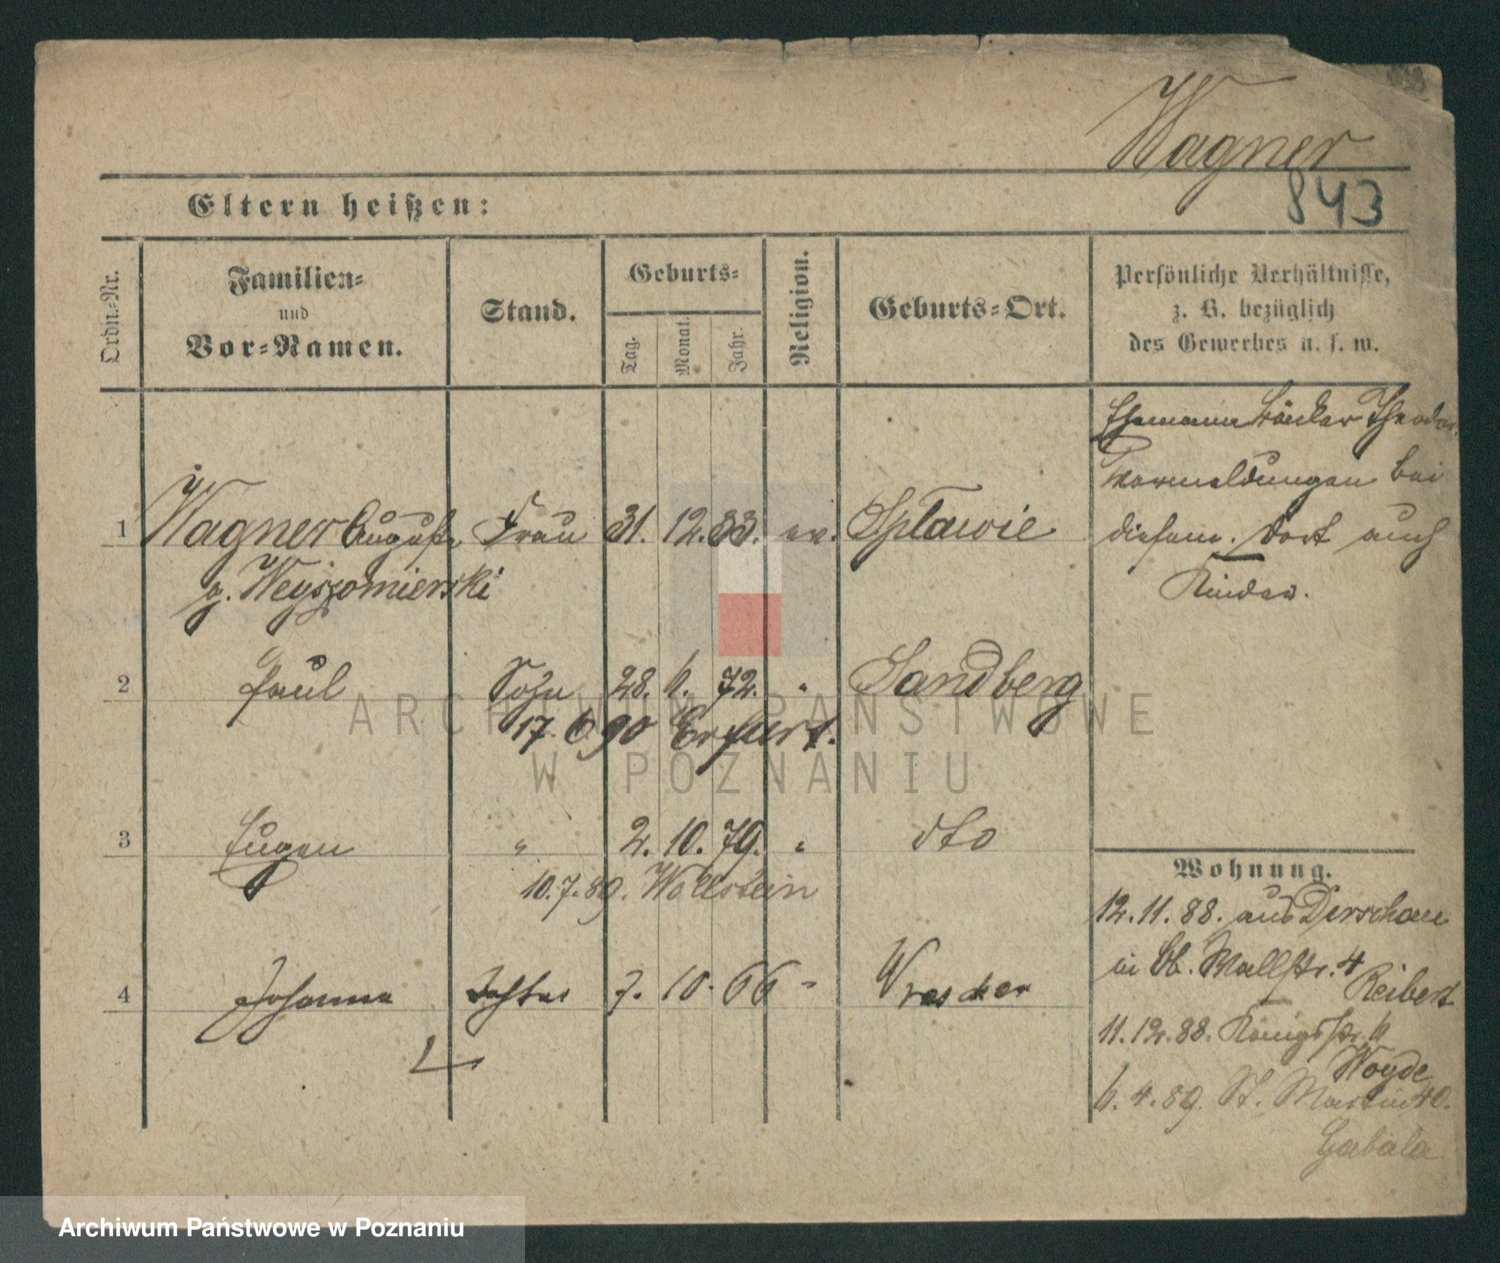 Wagner
843
Eltern heißen:
Ordn.-Nr.
Familien-
und
Vor-Namen.
Stand.
Geburts-
Tag.
Monat.
Jahr.
Religion.
Geburts-Ort.
Persönliche Verhältnisse,
z. B. bezüglich
des Gewerbes u. s. w.
Ehemann Bäcker Theodor
bei
diesem. Dort auch
Kinder.
1 Wagner Auguste Frau 31. 12. 33. ev. Splawie
g. Weyszomierski
2 Paul Sohn 28. 6. 72. " Sandberg
17. 6 90 Erfurt.
3 Eugen " 2. 10. 79. " dto
10. 7. 89. Wollstein
4 Johanna Tochter 7. 10. 66 " Wreschen
Wohnung.
12. 11. 88. aus Dirschau
in Wallstr. 4
Reibert
11. 12. 88. Königsstr. 6
Woyde
6. 4. 89. St. Martin 40.
Gabala
ARCHIWUM PAŃSTWOWE
W POZNANIU
Archiwum Państwowe w Poznaniu